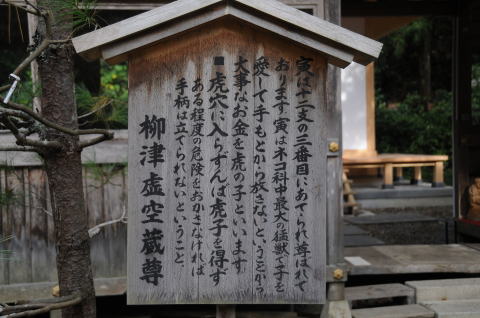 寅は十二支の三番目にあてられ尊ばれて
おります寅は不二科中最大の猛獣で子を
愛して手もとから放さないということから
大事なお金を虎の子といいます
■虎穴に入らずんば虎子を得ず
ある程度の危険をおかさなければ
手柄は立てられないということ
柳津虚空蔵尊